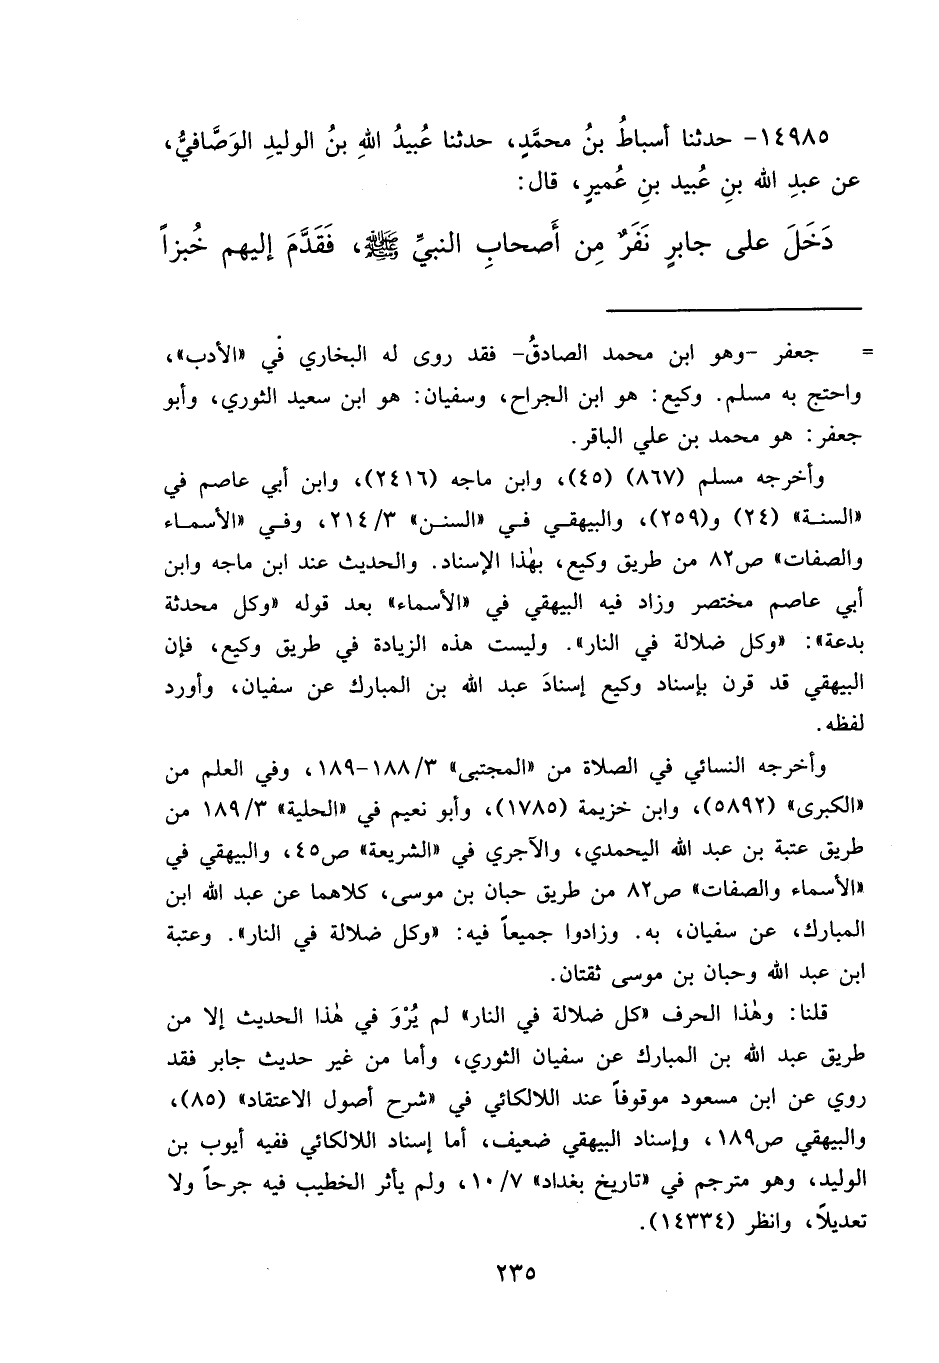 ١٤٩٨٥- حدثنا أسباطُ بنُ محمَّدٍ، حدثنا عُبيدُ اللهِ بنُ الوليدِ الوَصَّافيُّ،
عن عبدِ الله بنِ عُبيد بنِ عُميرٍ، قال:
دَخَلَ على جابرٍ نَفَرٌ مِن أَصحابِ النبيِّ ﷺ، فَقَدَّمَ إليهم خُبزاً
= جعفر -وهو ابن محمد الصادقُ- فقد روى له البخاري في «الأدب»،
واحتج به مسلم. وكيع: هو ابن الجراح، وسفيان: هو ابن سعيد الثوري، وأبو
جعفر: هو محمد بن علي الباقر.
وأخرجه مسلم (٨٦٧) (٤٥)، وابن ماجه (٢٤١٦)، وابن أبي عاصم في
«السنة» (٢٤) و(٢٥٩)، والبيهقي في «السنن» ٣/ ٢١٤، وفي «الأسماء
والصفات» ص٨٢ من طريق وكيع، بهٰذا الإسناد. والحديث عند ابن ماجه وابن
أبي عاصم مختصر وزاد فيه البيهقي في «الأسماء» بعد قوله «وكل محدثة
بدعة»: «وكل ضلالة في النار». وليست هذه الزيادة في طريق وكيع، فإن
البيهقي قد قرن بإسناد وكيع إسنادَ عبد الله بن المبارك عن سفيان، وأورد
لفظه.
وأخرجه النسائي في الصلاة من «المجتبى» ٣/ ١٨٨-١٨٩، وفي العلم من
«الكبرى» (٥٨٩٢)، وابن خزيمة (١٧٨٥)، وأبو نعيم في «الحلية» ٣/ ١٨٩ من
طريق عتبة بن عبد الله اليحمدي، والآجري في «الشريعة» ص٤٥، والبيهقي في
«الأسماء والصفات» ص٨٢ من طريق حبان بن موسى، كلاهما عن عبد الله ابن
المبارك، عن سفيان، به. وزادوا جميعاً فيه: «وكل ضلالة في النار». وعتبة
ابن عبد الله وحبان بن موسى ثقتان.
قلنا: وهٰذا الحرف «كل ضلالة في النار» لم يُرْوَ في هٰذا الحديث إلا من
طريق عبد الله بن المبارك عن سفيان الثوري، وأما من غير حديث جابر فقد
روي عن ابن مسعود موقوفاً عند اللالكائي في «شرح أصول الاعتقاد» (٨٥)،
والبيهقي ص١٨٩، وإسناد البيهقي ضعيف، أما إسناد اللالكائي ففيه أيوب بن
الوليد، وهو مترجم في «تاريخ بغداد» ٧/ ١٠، ولم يأثر الخطيب فيه جرحاً ولا
تعديلاً، وانظر (١٤٣٣٤).
٢٣٥